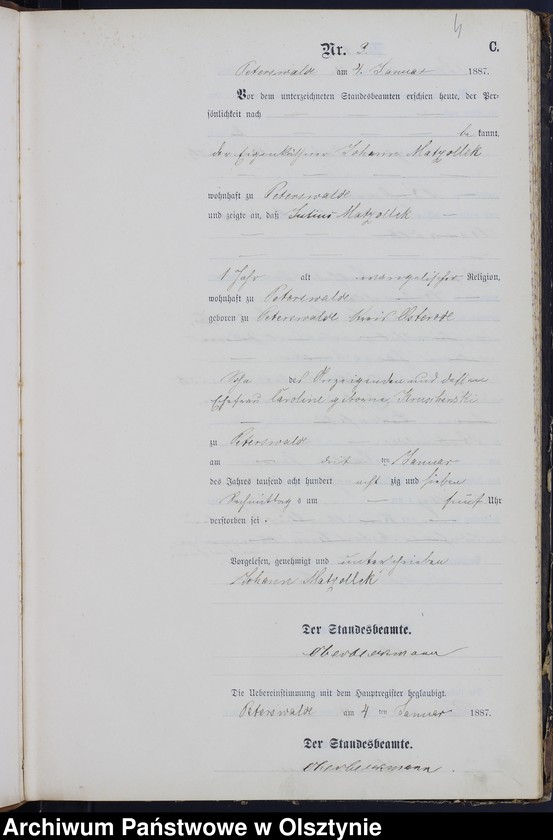 4
Nr. 3. C.
Peterswalde am 4. Januar 1887.
Vor dem unterzeichneten Standesbeamten erschien heute, der Per-
sönlichkeit nach
be kannt,
der Eigenkäthner Johann Matzollek
wohnhaft zu Peterswalde
und zeigte an, daß Julius Matzollek
1 Jahr alt evangelischer Religion,
wohnhaft zu Peterswalde
geboren zu Peterswalde Kreis Osterode
Sohn des Anzeigenden und dessen
Ehefrau Caroline geborne
zu Peterswalde
am drit ten Januar
des Jahres tausend acht hundert acht zig und sieben
Nachmittag s um fünf Uhr
verstorben sei.
Vorgelesen, genehmigt und unterschrieben
Johann Matzollek
Der Standesbeamte.
Die Uebereinstimmung mit dem Hauptregister beglaubigt.
Peterswalde am 4 ten Januar 1887.
Der Standesbeamte.
Archiwum Państwowe w Olsztynie